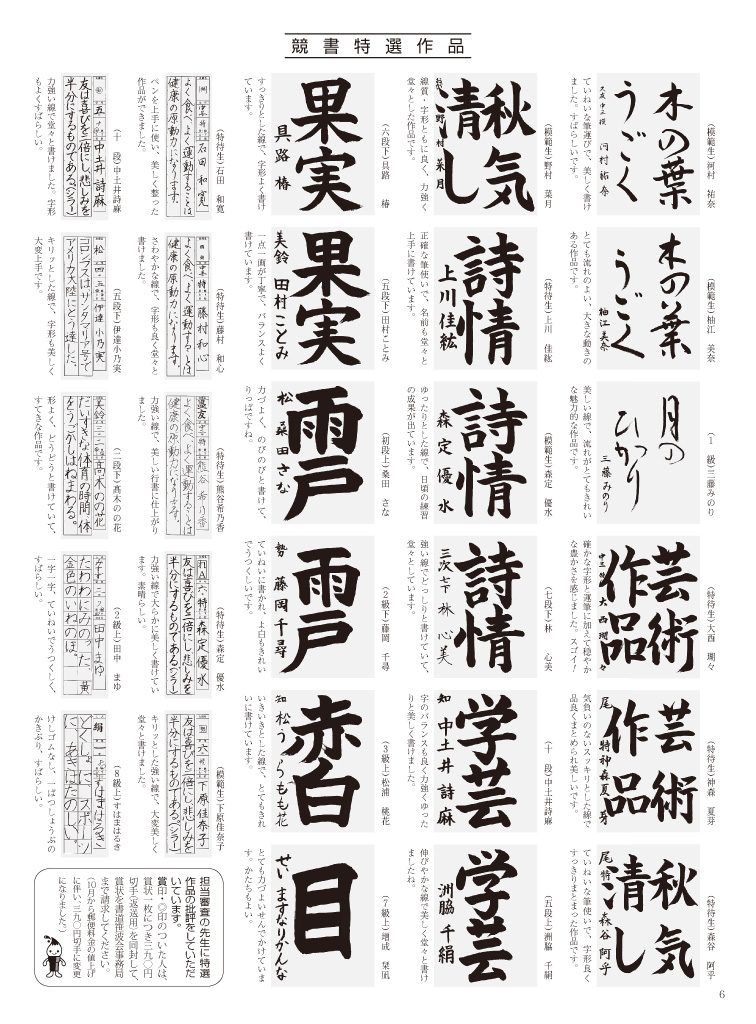 競書特選作品
(模範生)河村　祐奈
木の葉
うごく
大成 中三 模 河村祐奈
ていねいな筆運びで、美しく書け
ました。すばらしいです。
(模範生)野村　菜月
秋気
清し
野村菜月
線質・字形ともに良く、力強く
堂々とした作品です。
(六段下)具路　椿
果実
具路 椿
すっきりとした線で、字形よく書け
ています。
(特待生)石田　和寛
中
石田和寛
よく食べ、よく運動することは
健康の原動力になります。
ペンを上手に使い、美しく整った
作品ができました。
(十　段)中土井詩麻
五
中土井詩麻
友は喜びを二倍にし、悲しみを
半分にするものである。(シラー)
力強い線で堂々と書けました。字形
もよくすばらしい。
(模範生)柚江　美奈
木の葉
うごく
柚江美奈
とても流れのよい、大きな動きの
ある作品です。
(特待生)上川　佳紘
詩情
上川佳紘
正確な筆使いで、名前も堂々と
上手に書けています。
(五段下)田村ことみ
果実
美鈴 田村ことみ
一点一画が丁寧で、バランスよく
書けています。
(特待生)藤村　和心
藤村和心
よく食べ、よく運動することは
健康の原動力になります。
さわやかな線で、字形も良く堂々と
書けました。
(五段下)伊達小乃実
松 四 五 伊達小乃実
コロンブスはサンタマリア号で
アメリカ大陸にとう達した。
キリッとした線で、字形も美しく
大変上手です。
(1　級)三藤みのり
月の
ひかり
三藤みのり
美しい線で、流れがとてもきれい
な魅力的な作品です。
(模範生)森定　優水
詩情
森定優水
ゆったりとした線で、日頃の練習
の成果が出ています。
(初段上)桑田　さな
雨戸
松 桑田さな
力づよく、のびのびと書けて、
りっぱですね。
(特待生)熊谷希乃香
熊谷希乃香
よく食べ、よく運動することは
健康の原動力になります。
力強い線で、美しい行書に仕上がり
ました。
(二段下)髙木のの花
美鈴 三 二 髙木のの花
だいすきな体育の時間、体
をうごかしはねまわる。
形よく、どうどうと書けていて、
すてきな作品です。
(特待生)大西　瑚々
芸術
作品
中三 大西瑚々
確かな字形と運筆に加えて穏やか
な豊かさを感じました。スゴイ!
(七段下)林　心美
詩情
三次 七下 林心美
強い線でどっしりと書けていて、
堂々としています。
(2級下)藤岡　千尋
雨戸
勢 藤岡千尋
ていねいに書かれ、よ白もきれい
でうつくしいです。
(特待生)森定　優水
六 特 森定優水
友は喜びを二倍にし、悲しみを
半分にするものである。(シラー)
力強い線で大らかに美しく書けてい
ます。素晴らしい。
(2級上)田中　まゆ
田中まゆ
たわわにみのった、黄
金色のいねのほ。
一字一字、ていねいでうつくしく、
すばらしい。
(特待生)神森　夏芽
芸術
作品
尾 特 神森夏芽
気負いのないスッキリとした線で
品良くまとめられ美しいです。
(十　段)中土井詩麻
学芸
知 中土井詩麻
字のバランスも良く力強くゆった
りと美しく書けました。
(3級上)松浦　桃花
赤白
知 松うらもも花
いきいきとした線で、とてもきれ
いに書けています。
(模範生)下原佳奈子
六
下原佳奈子
友は喜びを二倍にし、悲しみを
半分にするものである。(シラー)
キリッとした強い線で、大変美しく
堂々と書けました。
(8級上)すはまはるき
絹 一
すはまはるき
どくしょに、スポーツ
に、あきはたのしい。
けしゴムなし、一ぱつしょうぶの
かきぶり、すばらしい。
(特待生)森谷　阿乎
秋気
清し
尾 特 森谷阿乎
ていねいな筆使いで、字形良く
すっきりまとまった作品です。
(五段上)洲脇　千絹
学芸
洲脇千絹
伸びやかな線で美しく堂々と書け
ましたね。
(7級上)増成　栞凪
目
せい ますなりかんな
とても力づよいせんでかけていま
す。かたちもよい。
担当審査の先生に特選
作品の批評をしていただ
いています。
賞印・◎印のついた人は、
賞状一枚につき三九〇円
切手(返送用)を同封して、
賞状を書道笹波会事務局
まで請求してください。
(10月から郵便料金の値上げ
に伴い、三九〇円切手に変更
になりました。)
6